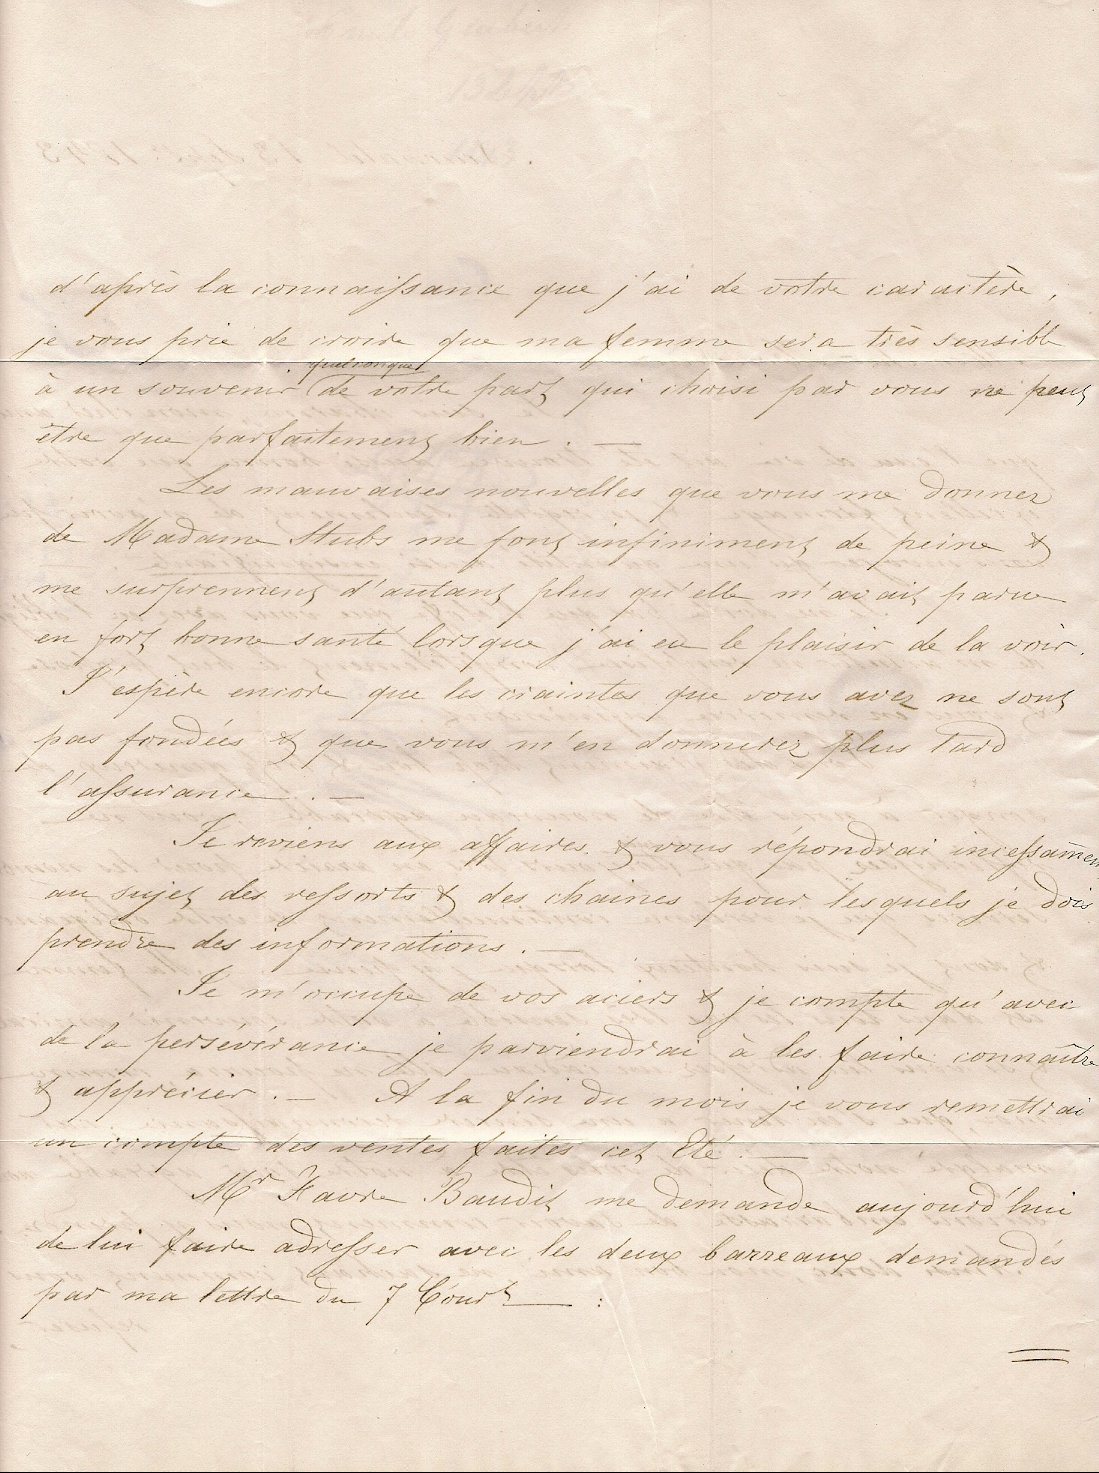 d'après la connaissance que j'ai de votre caractère,
je vous prie de croire que ma femme sera très sensible
quelconque
à un souvenir de votre part, qui choisi par vous ne peut
être que parfaitement bien. —
Les mauvaises nouvelles que vous me donnez
de Madame Stubs me font infiniment de peine &
me surprennent d'autant plus qu'elle m'avait parue
en fort bonne santé lorsque j'ai eu le plaisir de la voir.
J'espère encore que les craintes que vous avez ne sont
pas fondées & que vous m'en donnerez plus tard
l'assurance. —
Je reviens aux affaires & vous répondrai incessamen
au sujet des ressorts & des chaines pour lesquels je dois
prendre des informations. —
Je m'occupe de vos aciers & je compte qu'avec
de la persévérance je parviendrai à les faire connaître
& apprécier. — A la fin du mois je vous remettrai
un compte des ventes faites cet Eté. —
Mr Favre Baudit me demande aujourd'hui
de lui faire adresser avec les deux barreaux demandés
par ma lettre du 7 Court — :